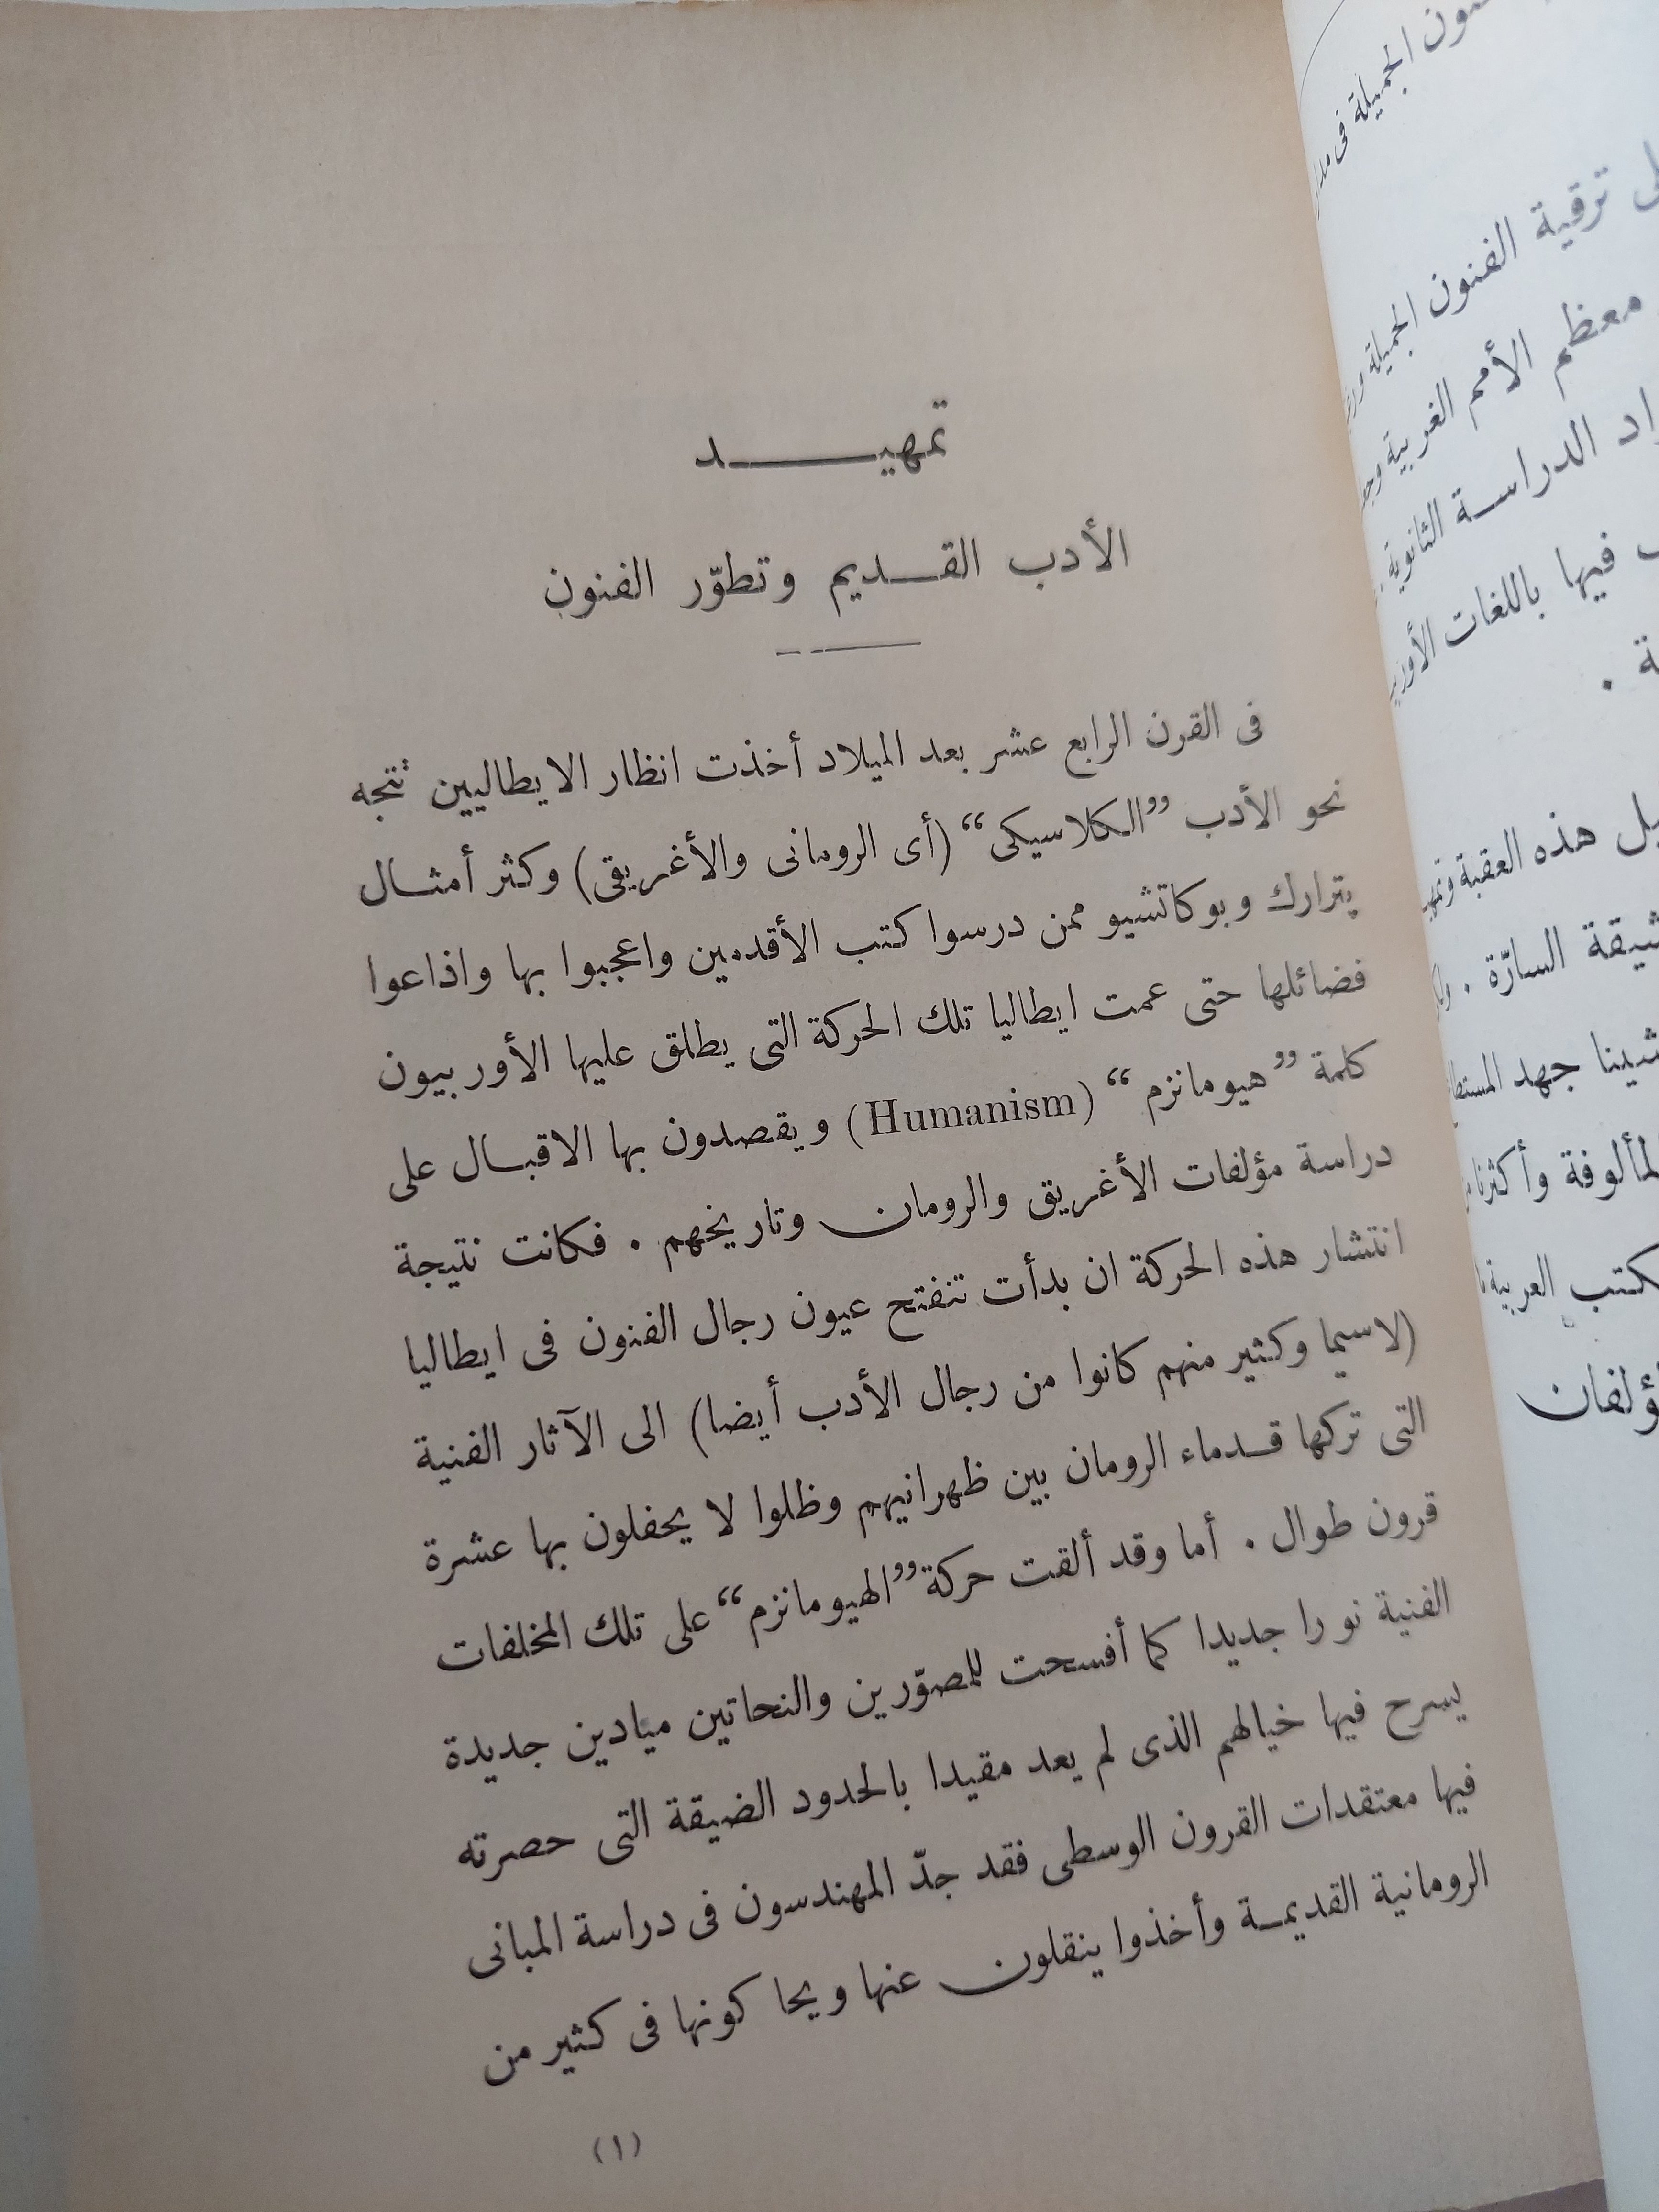 تمهيـــــــد
الأدب القـــديم وتطوّر الفنون
فى القرن الرابع عشر بعد الميلاد أخذت انظار الايطاليين تتجه
نحو الأدب ”الكلاسيكى“ (أى الرومانى والأغريقى) وكثر أمثـال
پترارك وبوكاتشيو ممن درسوا كتب الأقدمين واعجبوا بها واذاعوا
فضائلها حتى عمت ايطاليا تلك الحركة التى يطلق عليها الأوربيون
كلمة ”هيومانزم“ (Humanism) ويقصدون بها الاقبـال على
دراسة مؤلفات الأغريق والرومان وتاريخهم . فكانت نتيجة
انتشار هذه الحركة ان بدأت تنفتح عيون رجال الفنون فى ايطاليا
(لاسيما وكثير منهم كانوا من رجال الأدب أيضا) الى الآثار الفنية
التى تركها قـدماء الرومان بين ظهرانيهم وظلوا لا يحفلون بها عشرة
قرون طوال . أما وقد ألقت حركة ”الهيومانزم“ على تلك المخلفات
الفنية نورا جديدا كما أفسحت للمصوّرين والنحاتين ميادين جديدة
يسرح فيها خيالهم الذى لم يعد مقيدا بالحدود الضيقة التى حصرته
فيها معتقدات القرون الوسطى فقد جدّ المهندسون فى دراسة المبانى
الرومانية القديمـة وأخذوا ينقلون عنها ويحاكونها فى كثير من
(١)
الجميلة فى
ترقية الفنون الجميلة
معظم الأمم الغربية
الدراسـة الثانوية
فيها باللغات
هذه العقبة
السارّة .
جهد
وأكثرنا
العربية